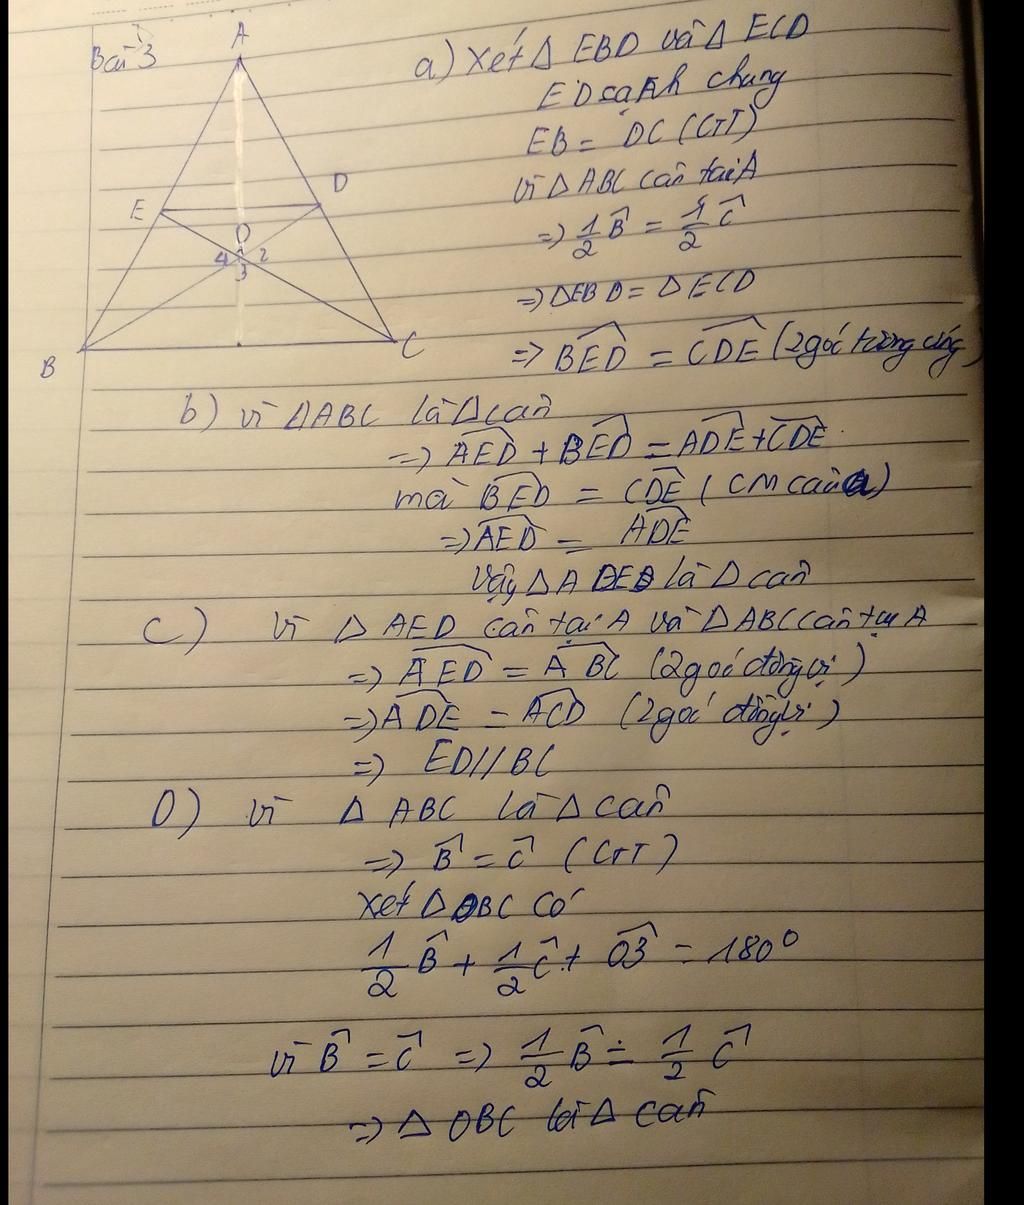 Bài 3
A
E
D
O
4 2
3
B
C
a) Xét Δ EBD và Δ ECD
ED cạnh chung
EB = DC (GT)
Vì Δ ABC cân tại A
=> 1/2 B̂ = 1/2 Ĉ
=> ΔEBD = Δ ECD
=> BED = CDE (2 góc tương ứng)
b) Vì ΔABC là Δ cân
=> AED + BED = ADE + CDE
mà BED = CDE (CM câu a)
=> AED = ADE
Vậy Δ A DE là Δ cân
C) Vì Δ AED cân tại A và Δ ABC cân tại A
=> AED = ABC (2 góc đồng vị)
=> ADE = ACD (2 góc đồng vị)
=> ED // BC
D) Vì Δ ABC là Δ cân
=> B̂ = Ĉ (GT)
Xét Δ OBC có
1/2 B̂ + 1/2 Ĉ + O3 = 180°
Vì B̂ = Ĉ => 1/2 B̂ = 1/2 Ĉ
=> Δ OBC là Δ cân